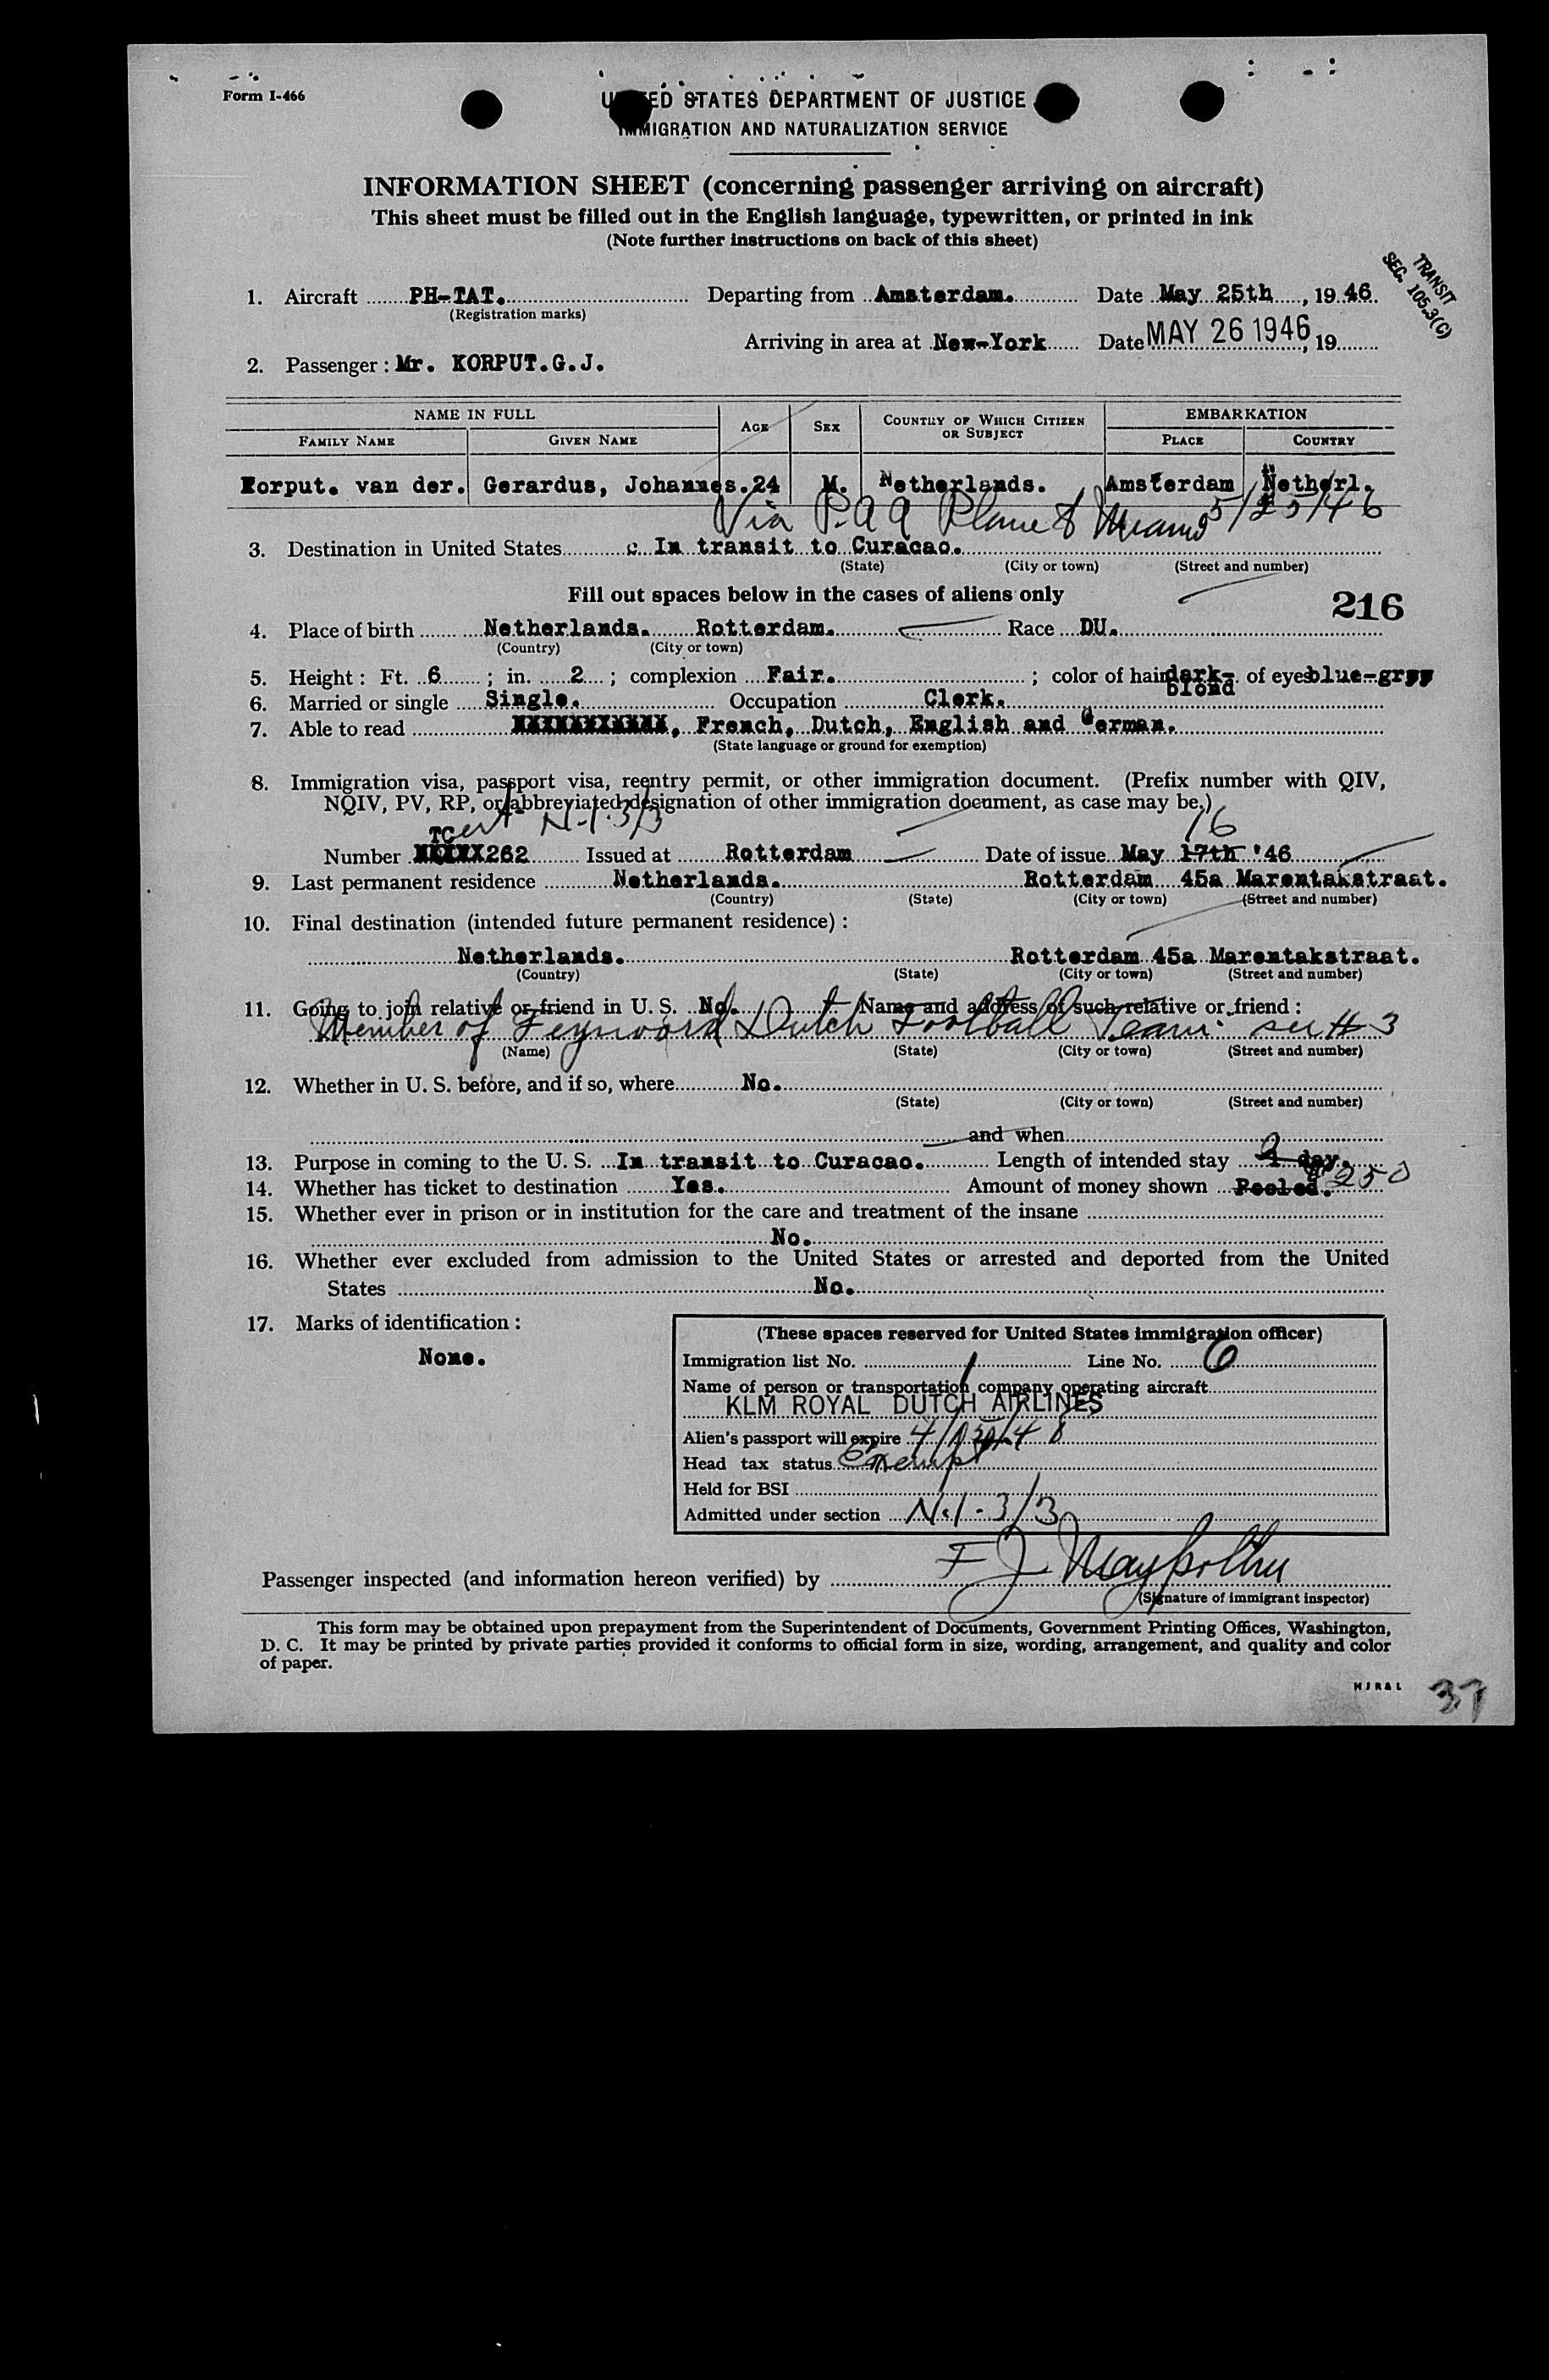 Form I-466
UNITED STATES DEPARTMENT OF JUSTICE
IMMIGRATION AND NATURALIZATION SERVICE
INFORMATION SHEET (concerning passenger arriving on aircraft)
This sheet must be filled out in the English language, typewritten, or printed in ink
(Note further instructions on back of this sheet)
TRANSIT
SEC. 105.3(C)
1. Aircraft PH-TAT. Departing from Amsterdam. Date May 25th, 1946.
(Registration marks)
Arriving in area at New-York Date MAY 26 1946, 19
2. Passenger: Mr. KORPUT.G.J.
NAME IN FULL AGE SEX COUNTRY OF WHICH CITIZEN OR SUBJECT EMBARKATION
FAMILY NAME GIVEN NAME PLACE COUNTRY
Korput. van der. Gerardus, Johannes. 24 M. Netherlands. Amsterdam Netherl.
Via P.A.A Plane & Miami 5/25/46
3. Destination in United States c. In transit to Curacao.
(State) (City or town) (Street and number)
Fill out spaces below in the cases of aliens only
216
4. Place of birth Netherlands. Rotterdam. Race DU.
(Country) (City or town)
5. Height: Ft. 6; in. 2; complexion Fair.; color of hair dark-blond of eyes blue-gray
6. Married or single Single. Occupation Clerk.
7. Able to read , French, Dutch, English and German.
(State language or ground for exemption)
8. Immigration visa, passport visa, reentry permit, or other immigration document. (Prefix number with QIV,
NQIV, PV, RP, or abbreviated designation of other immigration document, as case may be.)
TCert N-1.3/3 16
Number 262 Issued at Rotterdam Date of issue May 17th '46
9. Last permanent residence Netherlands. Rotterdam 45a Marentakstraat.
(Country) (State) (City or town) (Street and number)
10. Final destination (intended future permanent residence):
Netherlands. Rotterdam 45a Marentakstraat.
(Country) (State) (City or town) (Street and number)
11. Going to join relative or friend in U. S. No. Name and address of such relative or friend:
Member of Feynoord Dutch Football Team. see # 3
(Name) (State) (City or town) (Street and number)
12. Whether in U. S. before, and if so, where No.
(State) (City or town) (Street and number)
and when
13. Purpose in coming to the U. S. In transit to Curacao. Length of intended stay 2 1 day.
14. Whether has ticket to destination Yes. Amount of money shown Pooled. $250
15. Whether ever in prison or in institution for the care and treatment of the insane
No.
16. Whether ever excluded from admission to the United States or arrested and deported from the United
States No.
17. Marks of identification:
None.
(These spaces reserved for United States immigration officer)
Immigration list No. 1 Line No. 6
Name of person or transportation company operating aircraft
KLM ROYAL DUTCH AIRLINES
Alien's passport will expire 4/ /48
Head tax status Exempt
Held for BSI
Admitted under section N.1-3/3
Passenger inspected (and information hereon verified) by F J
(Signature of immigrant inspector)
This form may be obtained upon prepayment from the Superintendent of Documents, Government Printing Offices, Washington,
D. C. It may be printed by private parties provided it conforms to official form in size, wording, arrangement, and quality and color
of paper.
HJR&L
37